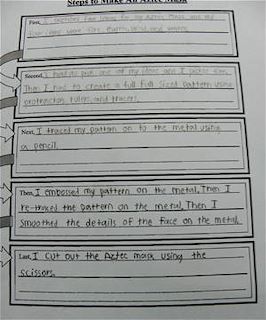 Steps to Make An Aztec Mask
First, I sketched four ideas for my Aztec Mask and my
four ideas were fire, earth, wind, and water.
Second, I had to pick one of my ideas and I picked
Then I had to create a full sized pattern using
protractors, rulers, and tracers.
Next, I traced my pattern on to the metal using
a pencil.
Then, I embossed my pattern on the metal. Then I
re-traced the pattern on the metal. Then I
smoothed the details of the face on the metal.
Last, I cut out the Aztec mask using the
scissors.